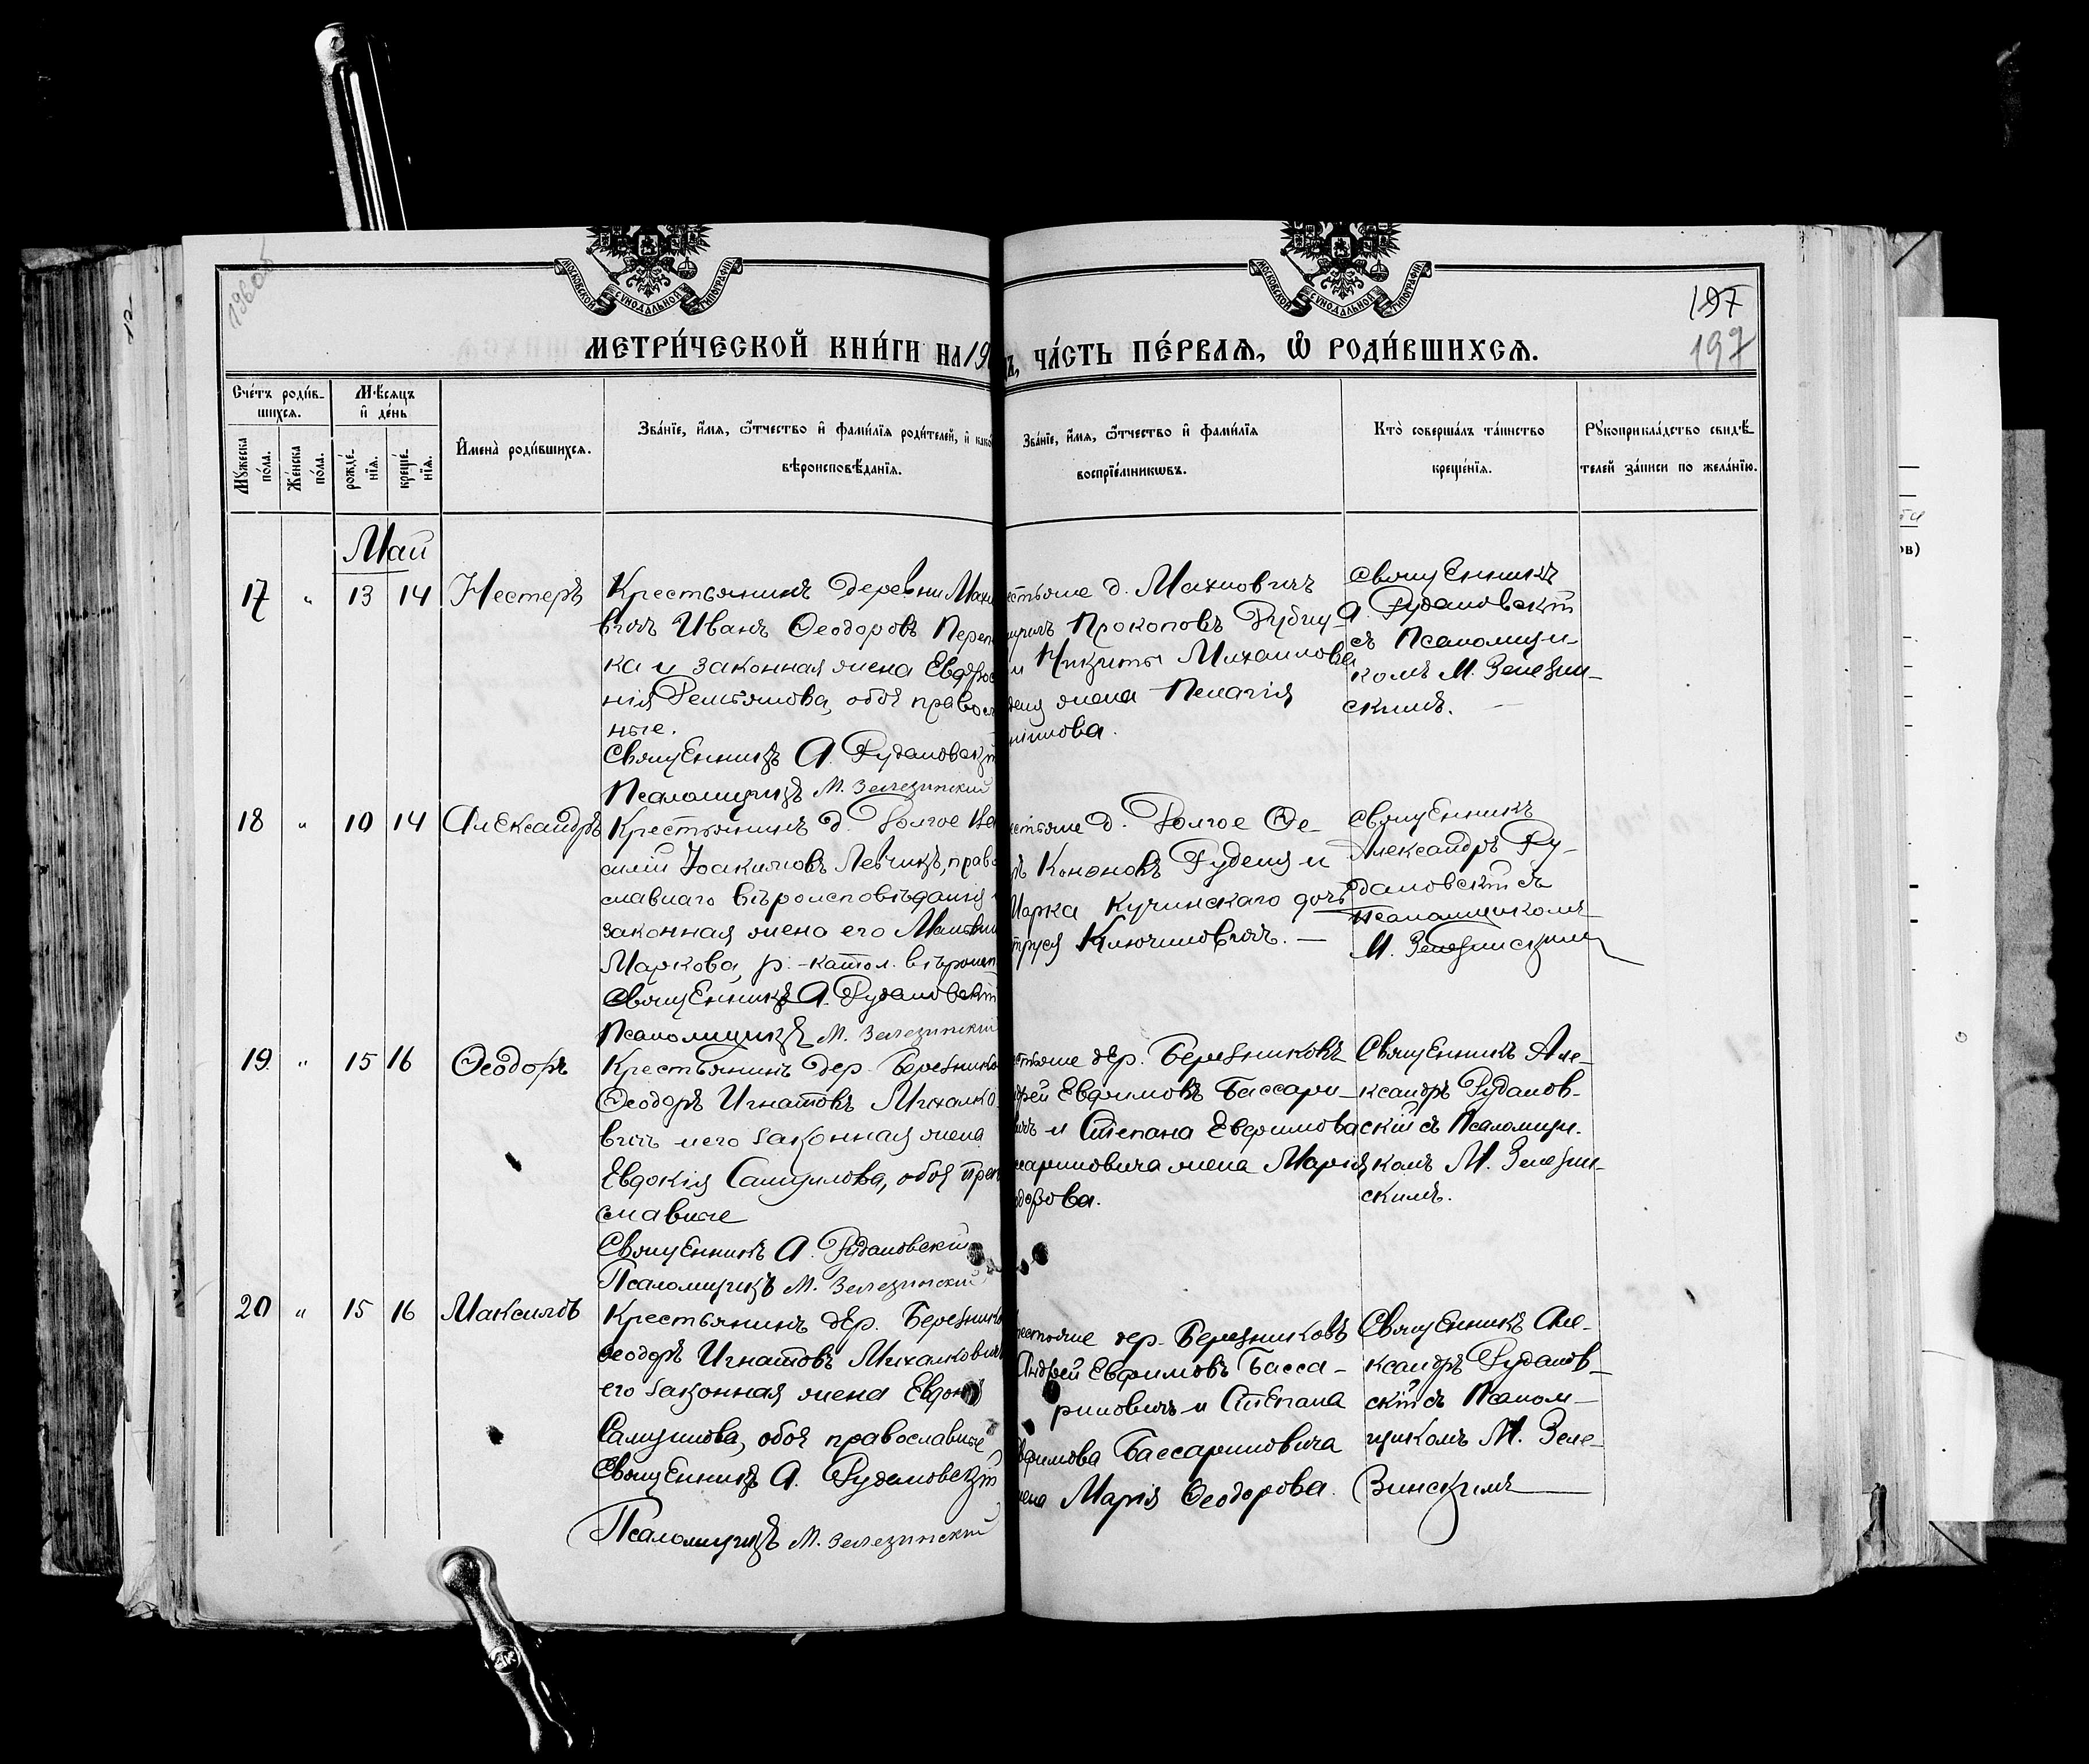 МОСКОВСКОЙ СѴНОДАЛЬНОЙ ТИПОГРАФІИ
МОСКОВСКОЙ СѴНОДАЛЬНОЙ ТИПОГРАФІИ
197
197
МЕТРИ́ЧЕСКОЙ КНИ́ГИ НА 19
ЧА́СТЬ ПЕ́РВАѦ, Ѽ РОДИ́ВШИХСѦ.
Сче́тъ роди́в-
шихсѧ.
Мѣ́сѧцъ
и҆ де́нь
Мꙋ́жеска
по́ла.
Же́нска
по́ла.
рожде́-
нїѧ.
креще́-
нїѧ.
И҆мена̀ роди́вшихсѧ.
Зва́нїе, и҆́мѧ, ѻ҆́тчество и҆ фами́лїѧ роди́телей, и҆ како
вѣроисповѣ́данїѧ.
Зва́нїе, и҆́мѧ, ѻ҆́тчество и҆ фами́лїѧ
воспрїе́мникѡвъ.
Кто̀ соверша́лъ та́инство
креще́нїѧ.
Рꙋкоприкла́дство свидѣ́-
телей за́писи по жела́нїю.
Май
17 „ 13 14 Нестеръ
Крестьянинъ деревни Махно
вичъ Иванъ Ѳеодоровъ
ка и законная жена Евфрос
нія обѣ правосл
ные.
Священникъ А. Рудановскій
Псаломщикъ М. Зелезинскій
естьяне д. Махновичъ
Прокоповъ
и Никиты Михайлова
жена Пелагія
Священникъ
А. Рудановскій
съ Псаломщи-
комъ М. Зелезин-
скимъ.
18 „ 10 14 Александръ
Крестьянинъ д. Долгое Ва
силій Іоакимовъ Левчикъ, право
славнаго вѣроисповѣданія
законная жена его
Маркова, р.-катол. вѣроисп
Священникъ А. Рудановскій
Псаломщикъ М. Зелезинскій
естьяне д. Долгое Ѳе-
ръ Кононовъ Рудень и
Марка Кучинскаго дочь
Ключиновичъ. —
Священникъ
Александръ Ру-
дановскій съ
Псаломщикомъ
М. Зелезинскимъ
19 „ 15 16 Ѳеодоръ
Крестьянинъ дер. Березнико
Ѳеодоръ Игнатовъ Михалко-
вичъ и его законная жена
Евдокія Самуилова, обоя пра
славные
Священникъ А. Рудановскій
Псаломщикъ М. Зелезинскій
стьяне дер. Березниковъ
дрей Евфимовъ Бассари-
вичъ и Стѣпана Евфимова
ссариновича жена Марія
одорова.
Священникъ Але-
ксандръ Руданов-
скій съ Псаломщи-
комъ М. Зелезин-
скимъ.
20 „ 15 16 Максимъ
Крестьянинъ дер. Березнико
Ѳеодоръ Игнатовъ Михалкович
его законная жена Евдокія
Самуилова, обоя православные
Священникъ А. Рудановскій
Псаломщикъ М. Зелезинскій
рестьяне дер. Березниковъ
Андрей Евфимовъ Басса-
риновичъ и Стѣпана
вфимова Бассариновича
жена Марія Ѳеодорова.
Священникъ Але-
ксандръ Руданов-
скій съ Псалом-
щикомъ М. Зеле-
зинскимъ